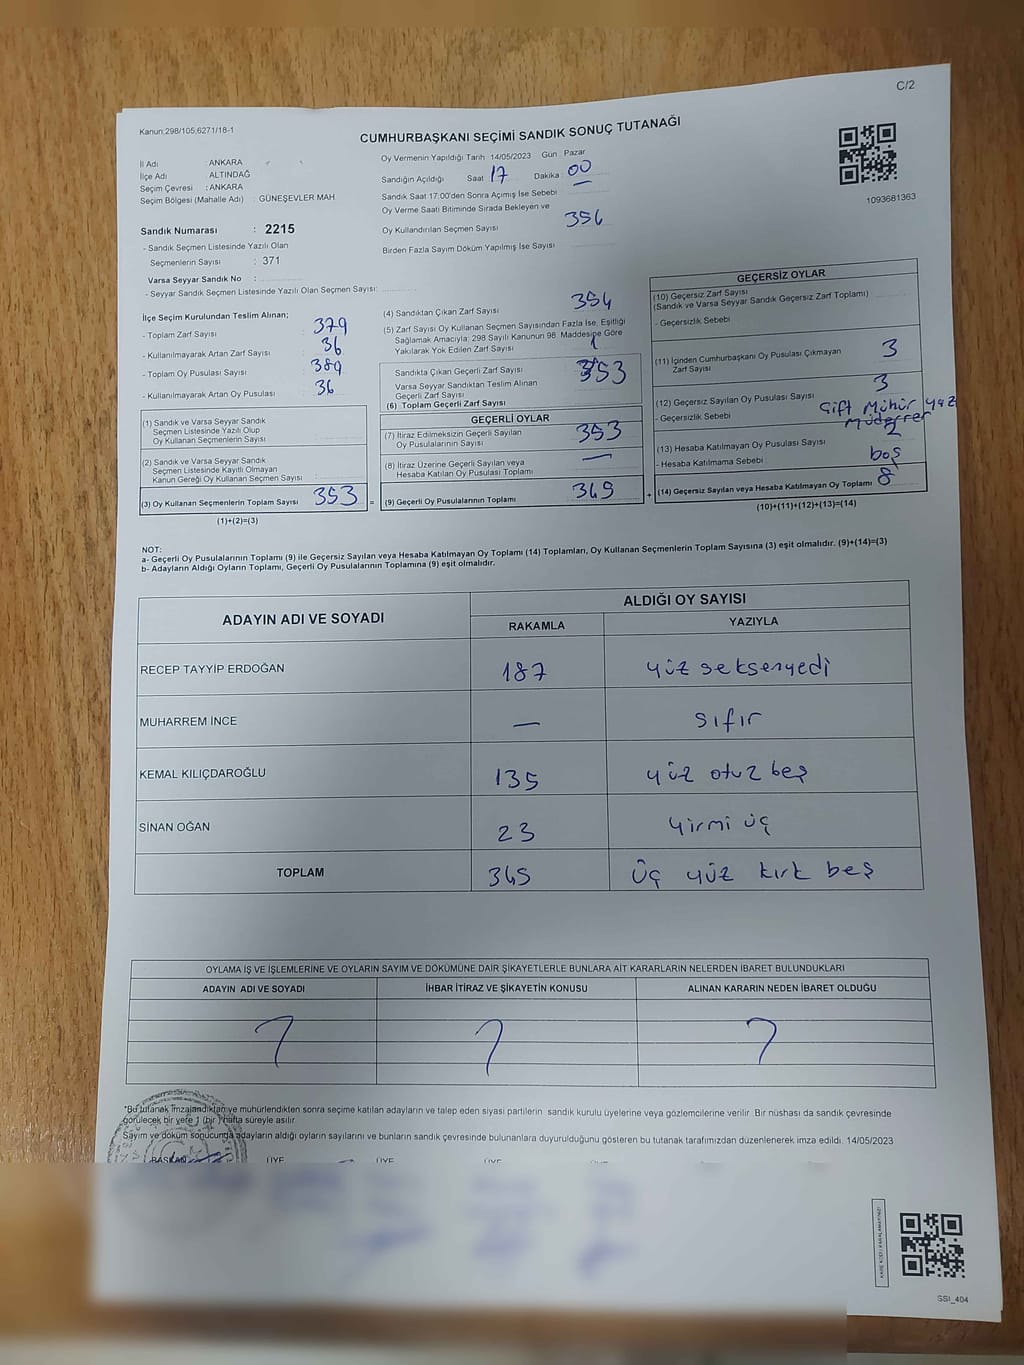 C/2
Kanun,298/105,6271/18-1
CUMHURBAŞKANI SEÇİMİ SANDIK SONUÇ TUTANAĞI
İl Adı : ANKARA
İlçe Adı : ALTINDAĞ
Seçim Çevresi : ANKARA
Seçim Bölgesi (Mahalle Adı) : GÜNEŞEVLER MAH.
Oy Vermenin Yapıldığı Tarih 14/05/2023 Gün Pazar
Sandığın Açıldığı Saat 17 Dakika 00
Sandık Saat 17:00'den Sonra Açımış İse Sebebi
Oy Verme Saati Bitiminde Sırada Bekleyen ve
Oy Kullandırılan Seçmen Sayısı 354
Birden Fazla Sayım Döküm Yapılmış İse Sayısı
1093681363
Sandık Numarası : 2215
- Sandık Seçmen Listesinde Yazılı Olan
Seçmenlerin Sayısı : 371
Varsa Seyyar Sandık No :
- Seyyar Sandık Seçmen Listesinde Yazılı Olan Seçmen Sayısı:
İlçe Seçim Kurulundan Teslim Alınan;
- Toplam Zarf Sayısı 379
- Kullanılmayarak Artan Zarf Sayısı 36
- Toplam Oy Pusulası Sayısı 389
- Kullanılmayarak Artan Oy Pusulası 36
(1) Sandık ve Varsa Seyyar Sandık
Seçmen Listesinde Yazılı Olup
Oy Kullanan Seçmenlerin Sayısı
(2) Sandık ve Varsa Seyyar Sandık
Seçmen Listesinde Kayıtlı Olmayan
Kanun Gereği Oy Kullanan Seçmen Sayısı :
(3) Oy Kullanan Seçmenlerin Toplam Sayısı 353 =
(1)+(2)=(3)
(4) Sandıktan Çıkan Zarf Sayısı 354
(5) Zarf Sayısı Oy Kullanan Seçmen Sayısından Fazla İse, Eşitliği
Sağlamak Amacıyla; 298 Sayılı Kanunun 98. Maddesine Göre
Yakılarak Yok Edilen Zarf Sayısı 1
Sandıkta Çıkan Geçerli Zarf Sayısı 353
Varsa Seyyar Sandıktan Teslim Alınan
Geçerli Zarf Sayısı
(6) Toplam Geçerli Zarf Sayısı
GEÇERLİ OYLAR
(7) İtiraz Edilmeksizin Geçerli Sayılan
Oy Pusulalarının Sayısı 353
(8) İtiraz Üzerine Geçerli Sayılan veya
Hesaba Katılan Oy Pusulası Toplamı —
(9) Geçerli Oy Pusulalarının Toplamı 345 +
GEÇERSİZ OYLAR
(10) Geçersiz Zarf Sayısı
(Sandık ve Varsa Seyyar Sandık Geçersiz Zarf Toplamı)
- Geçersizlik Sebebi
(11) İçinden Cumhurbaşkanı Oy Pusulası Çıkmayan
Zarf Sayısı 3
(12) Geçersiz Sayılan Oy Pusulası Sayısı 3
- Geçersizlik Sebebi Çift Mühür
(13) Hesaba Katılmayan Oy Pusulası Sayısı 2
- Hesaba Katılmama Sebebi boş
(14) Geçersiz Sayılan veya Hesaba Katılmayan Oy Toplamı 8
(10)+(11)+(12)+(13)=(14)
NOT:
a- Geçerli Oy Pusulalarının Toplamı (9) ile Geçersiz Sayılan veya Hesaba Katılmayan Oy Toplamı (14) Toplamları, Oy Kullanan Seçmenlerin Toplam Sayısına (3) eşit olmalıdır. (9)+(14)=(3)
b- Adayların Aldığı Oyların Toplamı, Geçerli Oy Pusulalarının Toplamına (9) eşit olmalıdır.
ADAYIN ADI VE SOYADI ALDIĞI OY SAYISI
RAKAMLA YAZIYLA
RECEP TAYYİP ERDOĞAN 187 yüz seksenyedi
MUHARREM İNCE — sıfır
KEMAL KILIÇDAROĞLU 135 yüz otuz beş
SİNAN OĞAN 23 yirmi üç
TOPLAM 345 üç yüz kırk beş
OYLAMA İŞ VE İŞLEMLERİNE VE OYLARIN SAYIM VE DÖKÜMÜNE DAİR ŞİKAYETLERLE BUNLARA AİT KARARLARIN NELERDEN İBARET BULUNDUKLARI
ADAYIN ADI VE SOYADI İHBAR İTİRAZ VE ŞİKAYETİN KONUSU ALINAN KARARIN NEDEN İBARET OLDUĞU
*Bu tutanak imzalandıktan ve mühürlendikten sonra seçime katılan adayların ve talep eden siyasi partilerin sandık kurulu üyelerine veya gözlemcilerine verilir. Bir nüshası da sandık çevresinde
görülecek bir yere 1 (bir) hafta süreyle asılır.
Sayım ve döküm sonucunda adayların aldığı oyların sayılarını ve bunların sandık çevresinde bulunanlara duyurulduğunu gösteren bu tutanak tarafımızdan düzenlenerek imza edildi. 14/05/2023
BAŞKAN ÜYE ÜYE ÜYE ÜYE
SSI_404